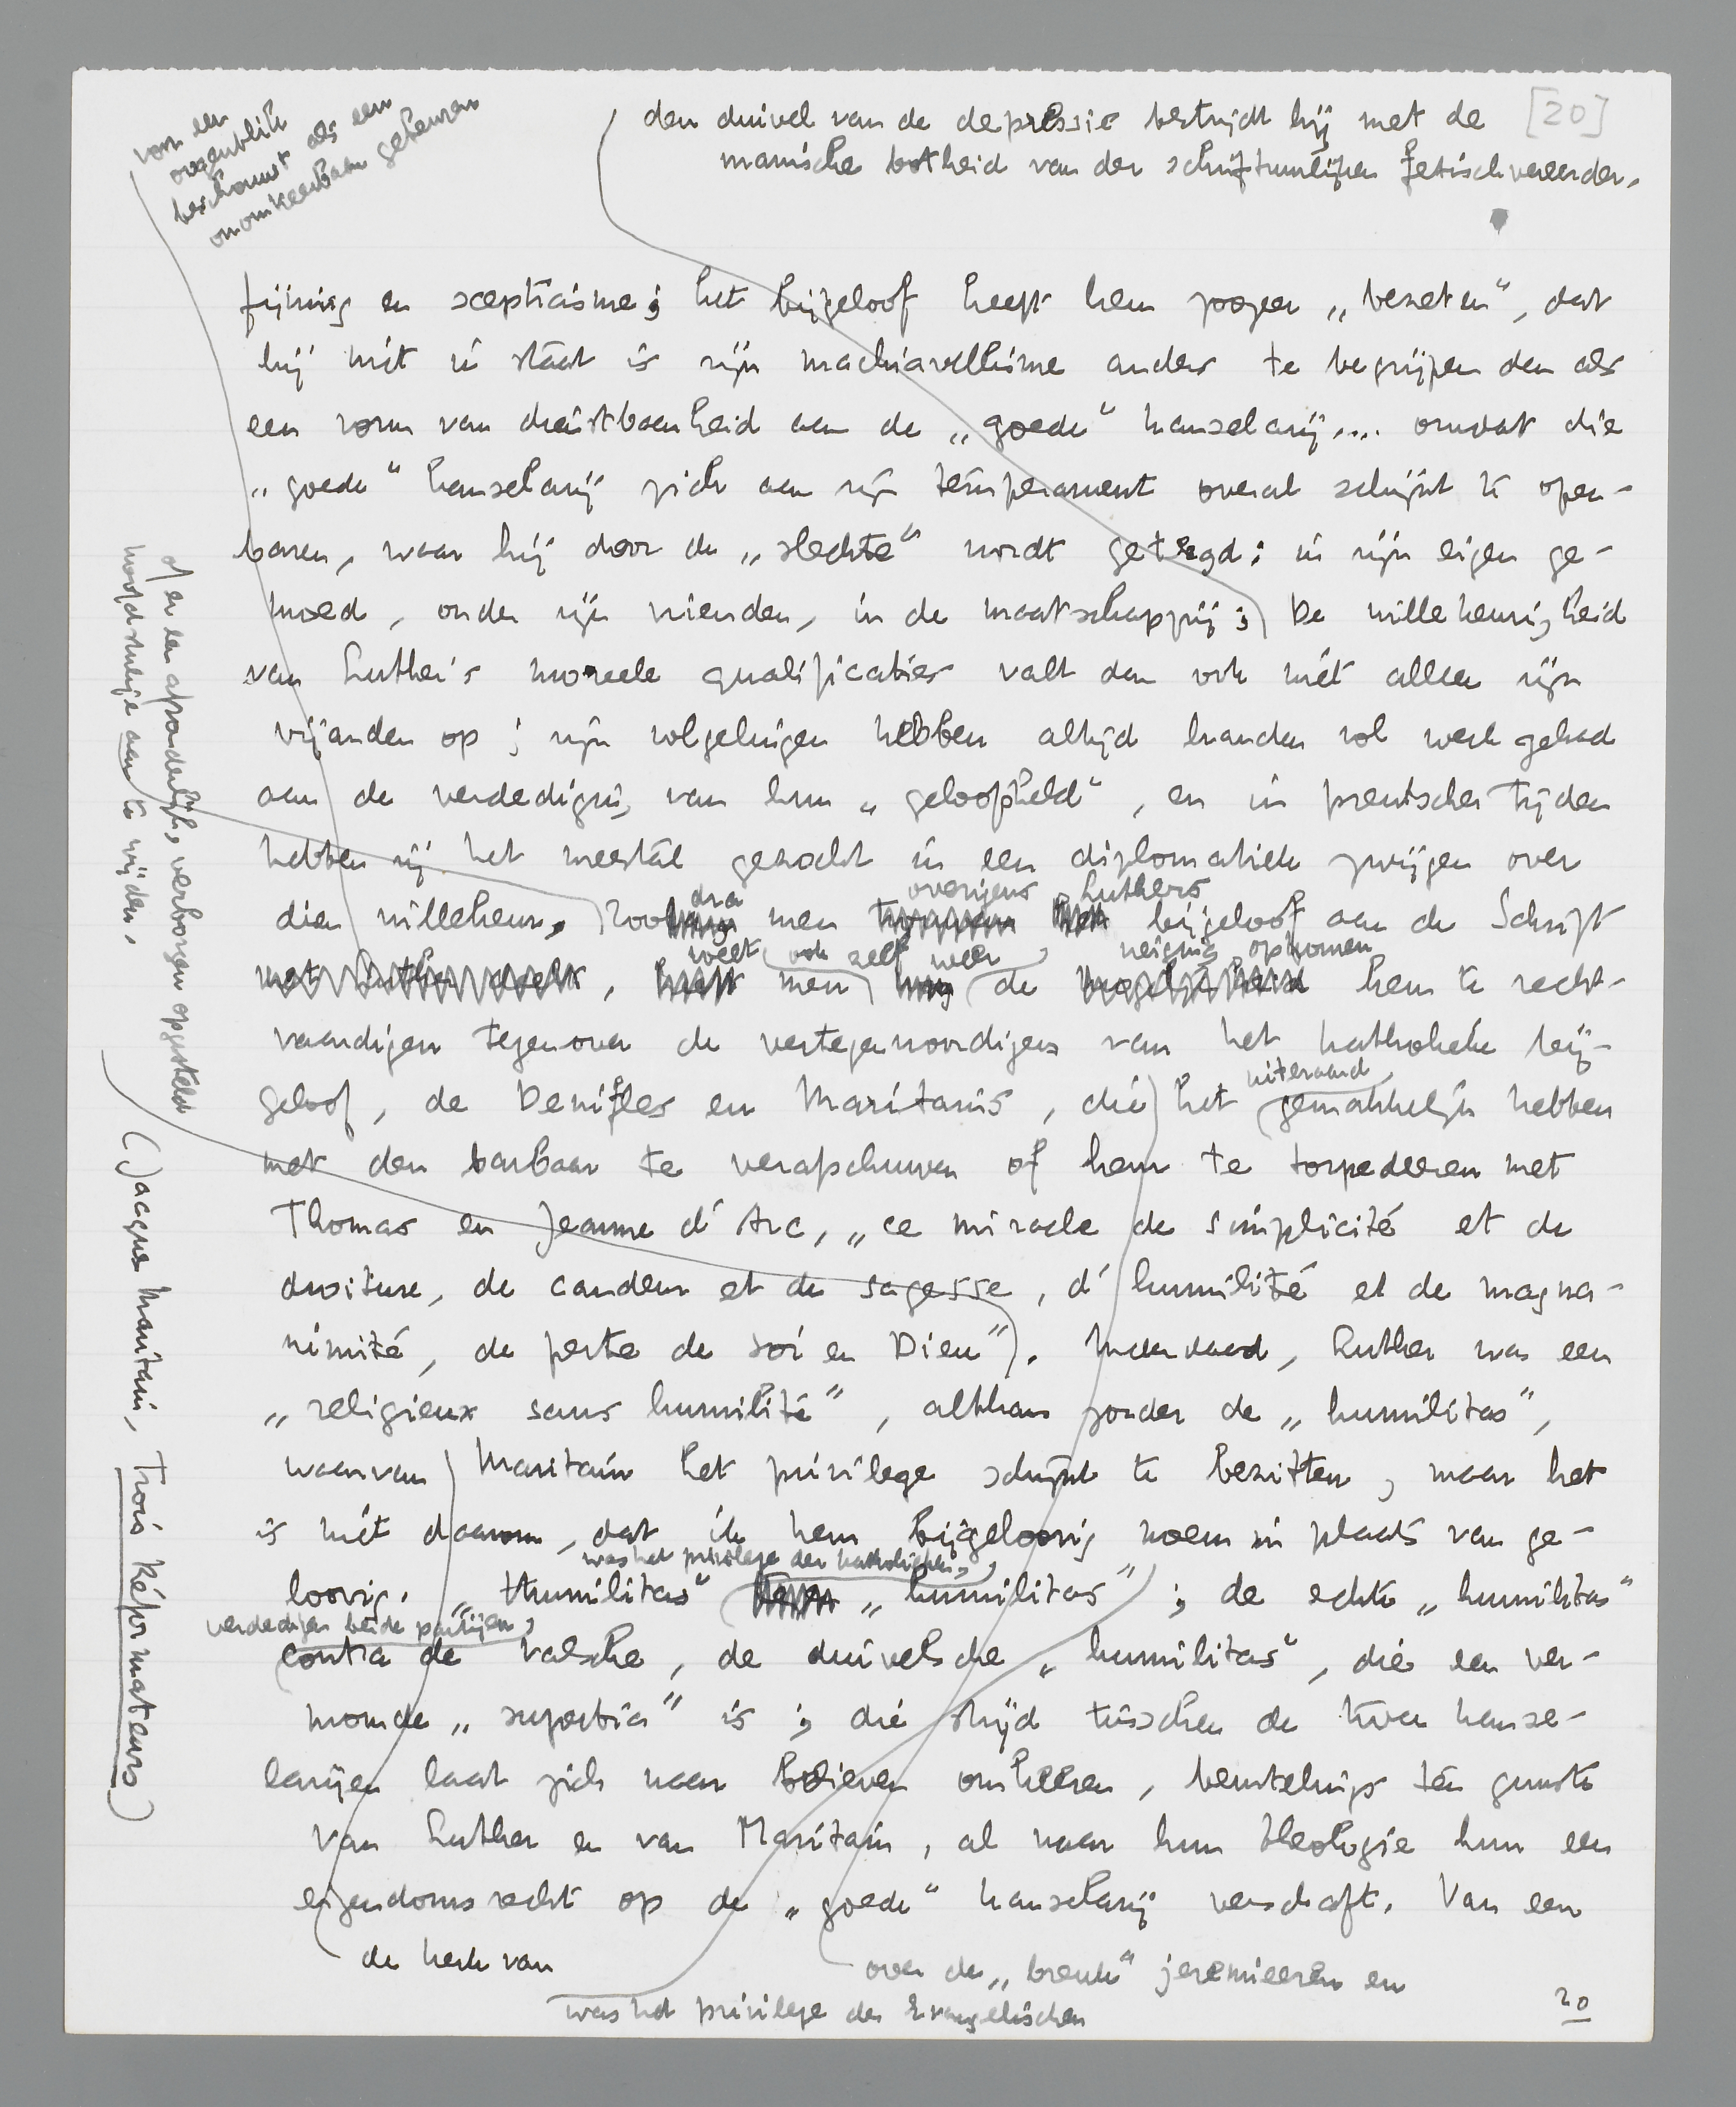 [20]
den duivel van de depressie bestrijdt hij met de
manische botheid van den schriftuurlijken fetischvereerder.
voor een
oogenblik
beschouwt als een
onomkeerbaar
fijning en scepticisme; het bijgeloof heeft hem zoozeer „bezeten”, dat
hij niet in staat is zijn machiavellisme anders te begrijpen dan als
een vorm van dienstbaarheid aan de „goede” kanselarij.... omdat die
„goede” kanselarij zich aan zijn temperament overal schijnt te open-
baren, waar hij door de „slechte” wordt getergd: in zijn eigen ge-
moed, onder zijn vrienden, in de maatschappij; De willekeurigheid
van Luther's moreele qualificaties valt dan ook niet alleen zijn
vijanden op; zijn volgelingen hebben altijd handen vol werk gehad
aan de verdediging van hun „geloofsheld”, en in preutscher tijden
hebben zij het meestal gezocht in een diplomatiek zwijgen over
dien willekeur, of er een afzonderlijk, verborgen opgesteld
hoofdstukje aan te wijden.
Zoodra men overigens Luthers bijgeloof aan de Schrift
, weet men ook zelf weer de neiging opkomen hem te recht-
vaardigen tegenover de vertegenwoordigers van het katholieke bij-
geloof, de Denifles en Maritains, die het uiteraard gemakkelijk hebben
met den barbaar te verafschuwen of hem te torpedeeren met
Thomas en Jeanne d'Arc, „ce miracle de simplicité et de
droiture, de candeur et de sagesse, d'humilité et de magna-
nimité, de perte de soi en Dieu”). (Jacques Maritain, Trois Réformateurs)
Inderdaad, Luther was een
„religieux sans humilité”, althans zonder de „humilitas”,
waarvan Maritain het privilege schijnt te bezitten; maar het
is niet daarom, dat ik hem bijgeloovig noem in plaats van ge-
loovig. „Humilitas” was het privilege der katholieken, „humilitas”
was het privilege der Evangelischen
; de echte „humilitas”
verdedigen beide partijen,
contra de valsche, de duivelsche „humilitas”, die een ver-
momde „superbia” is; die strijd tusschen de twee kanse-
larijen laat zich naar believen omkeeren, beurtelings ten gunste
van Luther en van Maritain, al naar hun theologie hun een
eigendomsrecht op de „goede” kanselarij verschaft. Van een
de kerk van
over de „breuk” jeremieeren en
20